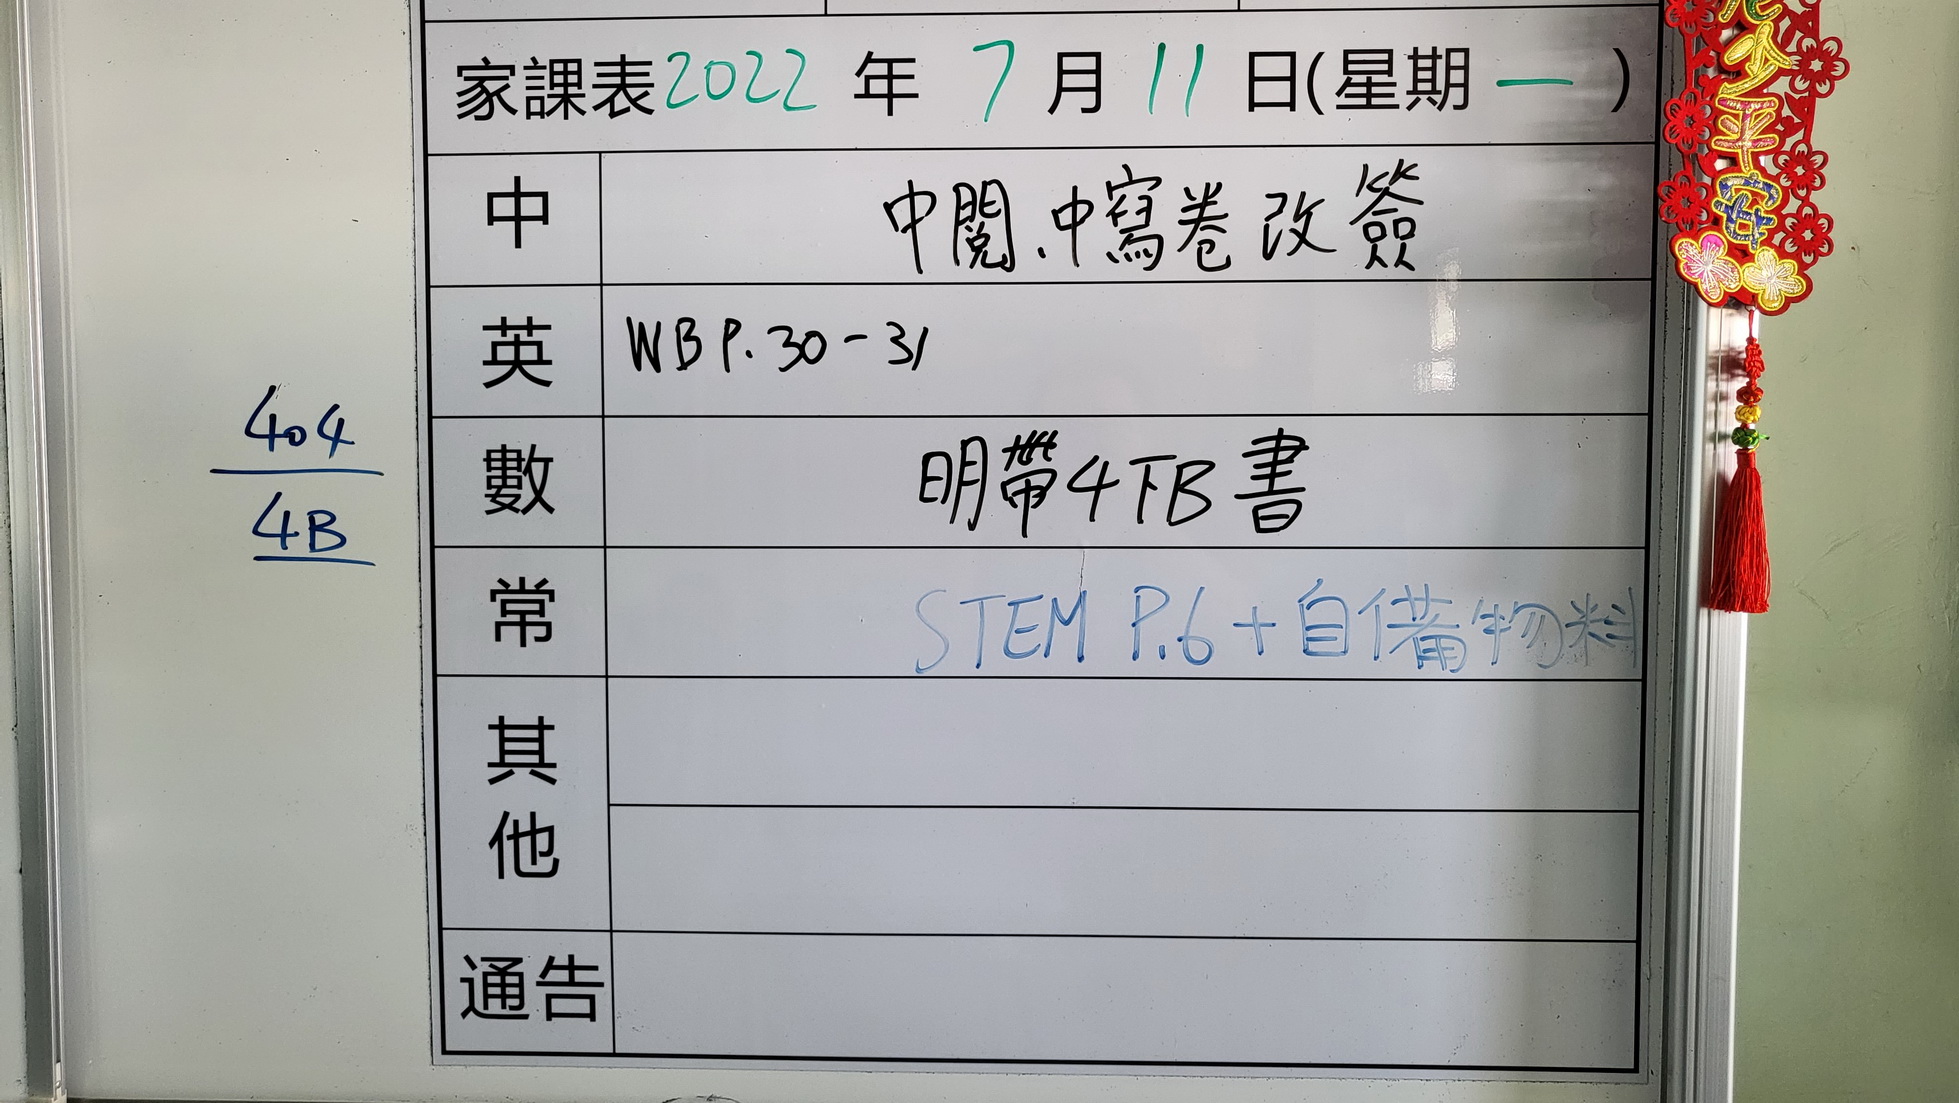 家課表2022年 7月11日(星期一)
中 中閱、中寫卷改簽
英 WB P.30-31
數 明帶4下B書
常 STEM P.6+自備物料
其他
通告
404
4B
平安